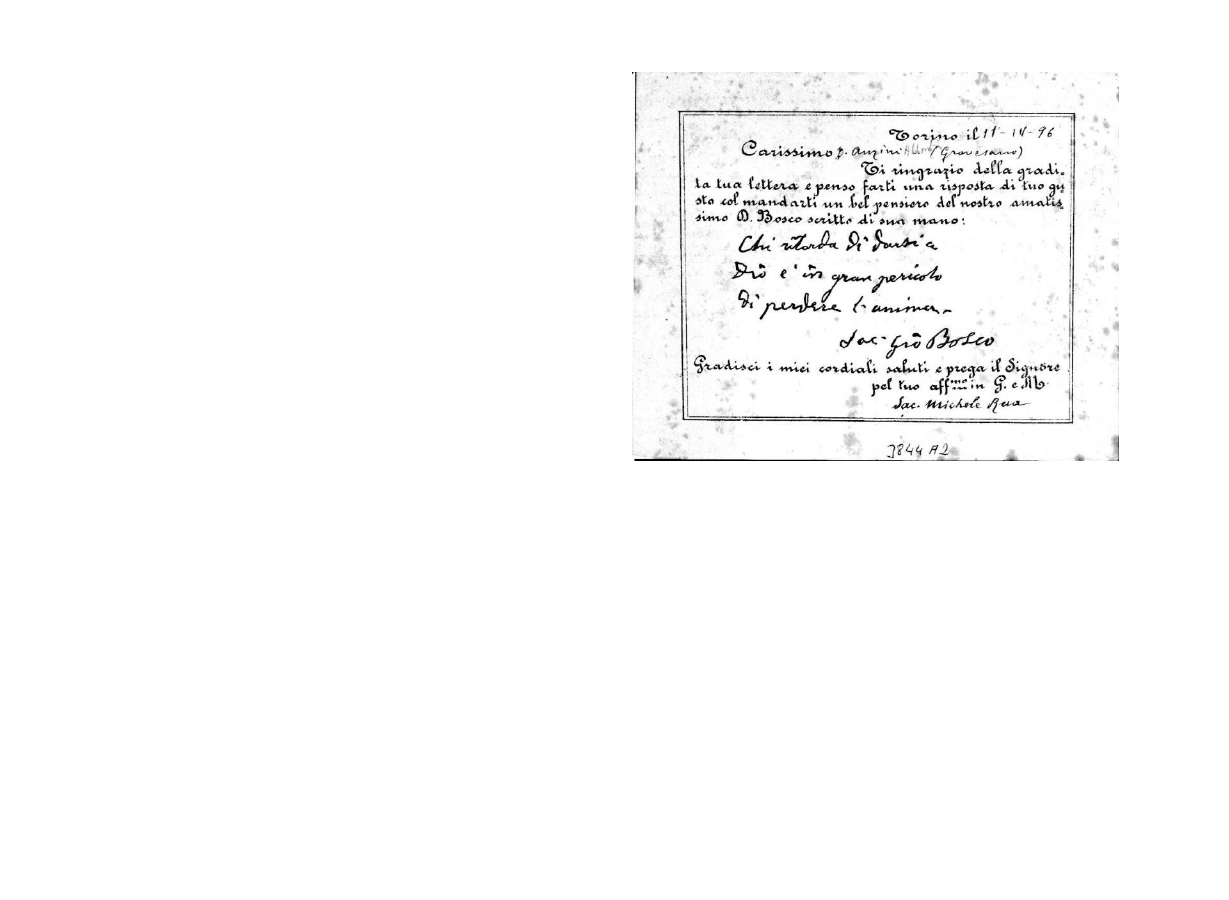 Torino il 11-IV-96
Carissimo D. Anzini Abbondio (Gravesano)
Ti ringrazio della gradi-
ta tua lettera e penso farti una risposta di tuo gu
sto col mandarti un bel pensiero del nostro amatis
simo D. Bosco scritto di sua mano:
Chi ritarda di darsi a
Dio e' in gran pericolo
di perdere l'anima.
Sac. Gio Bosco
Gradisci i miei cordiali saluti e prega il Signore
pel tuo aff.mo in G. e M.
Sac. Michele Rua
3844 A2